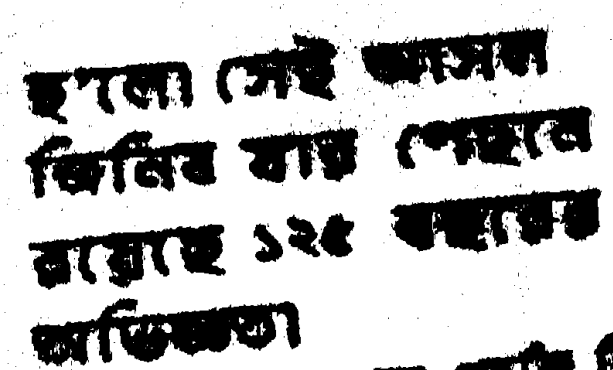 হ'লো সেই আসল
জিনিষ যার পেছনে
রয়েছে ১২৫ বছরের
অভিজ্ঞতা